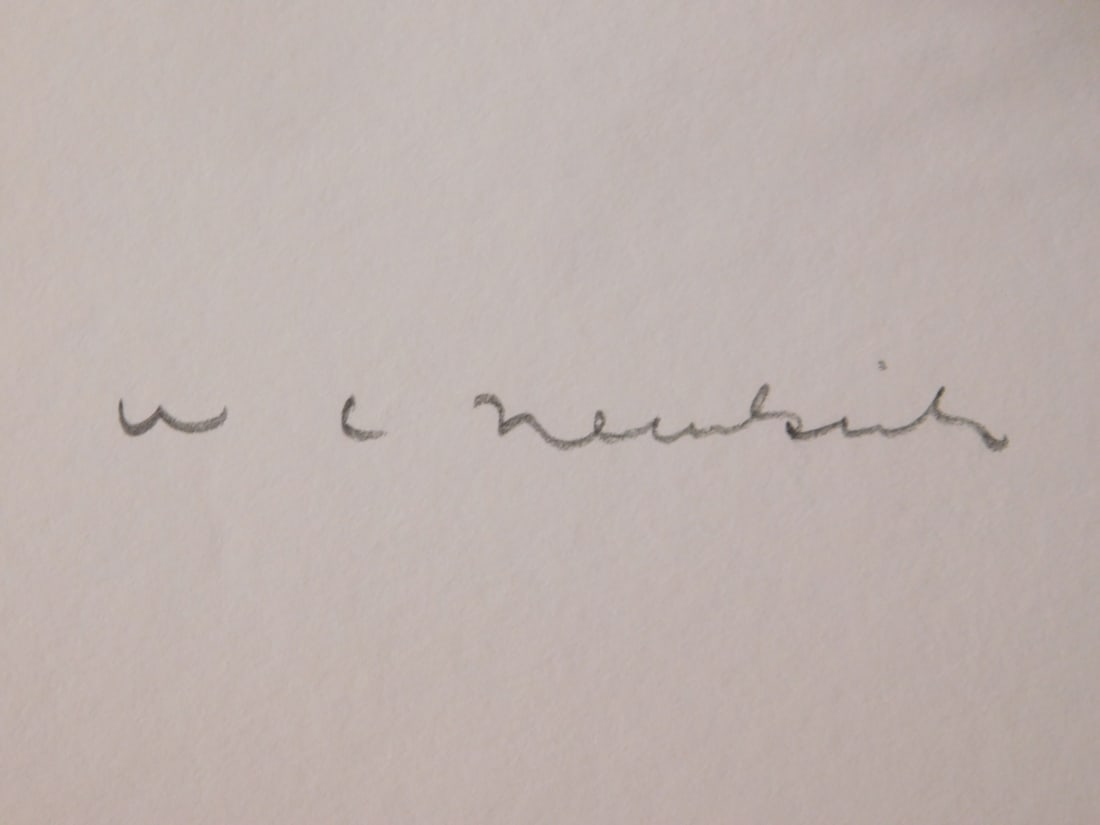 W C Newkirk